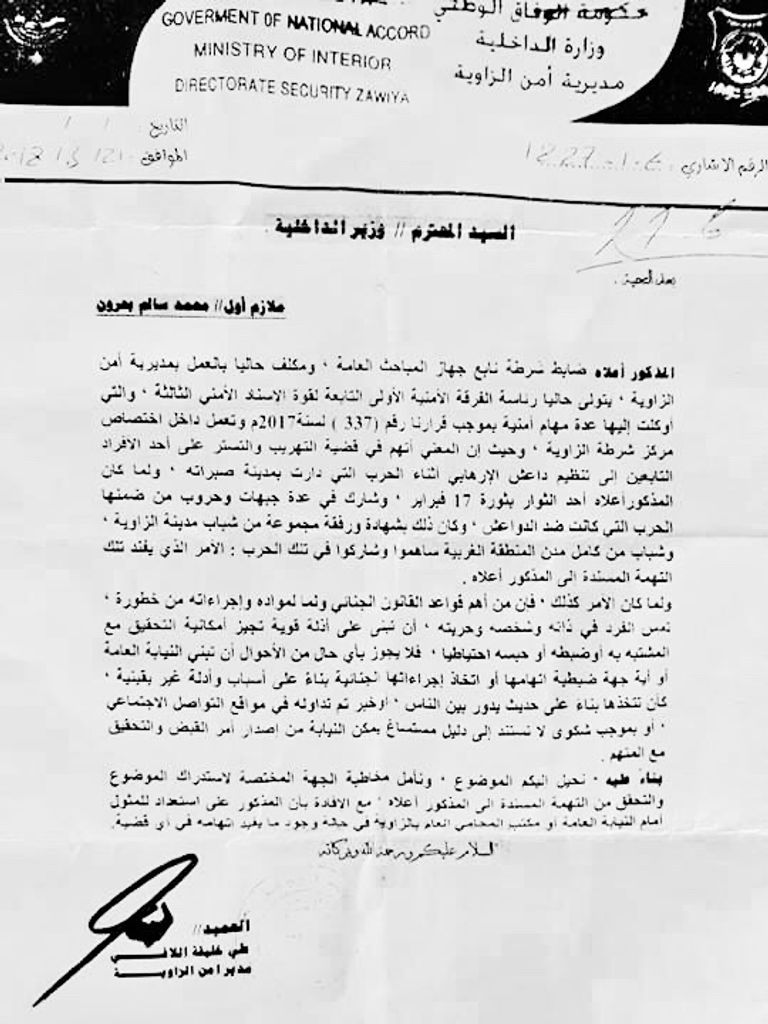 حكومة الوفاق الوطني
GOVERMENT OF NATIONAL ACCORD
وزارة الداخلية
MINISTRY OF INTERIOR
مديرية أمن الزاوية
DIRECTORATE SECURITY ZAWIYA
التاريخ : / /
الموافق
الرقم الاشاري
السيد المحترم // وزير الداخلية .
بعد التحية .
ملازم أول// محمد سالم بحرون
المذكور أعلاه ضابط شرطة تابع جهاز المباحث العامة ، ومكلف حاليا بالعمل بمديرية أمن
الزاوية ، يتولى حاليا رئاسة الفرقة الأمنية الأولى التابعة لقوة الاسناد الأمني الثالثة ، والتي
أوكلت إليها عدة مهام أمنية بموجب قرارنا رقم (337 ) لسنة2017م وتعمل داخل اختصاص
مركز شرطة الزاوية ، وحيث إن المعني أتهم في قضية التهريب والتستر على أحد الأفراد
التابعين الى تنظيم داعش الإرهابي أثناء الحرب التي دارت بمدينة صبراته ، ولما كان
المذكورأعلاه أحد الثوار بثورة 17 فبراير ، وشارك في عدة جبهات وحروب من ضمنها
الحرب التي كانت ضد الدواعش ، وكان ذلك بشهادة ورفقة مجموعة من شباب مدينة الزاوية ،
وشباب من كامل مدن المنطقة الغربية ساهموا وشاركوا في تلك الحرب : الأمر الذي يفند تلك
التهمة المسندة الى المذكور أعلاه .
ولما كان الأمر كذلك ، فإن من أهم قواعد القانون الجنائي ولما لمواده وإجراءاته من خطورة ،
تمس الفرد في ذاته وشخصه وحريته ، أن تبنى على أدلة قوية تجيز أمكانية التحقيق مع
المشتبه به أوضبطه أو حبسه احتياطيا ، فلا يجوز بأي حال من الأحوال أن تبني النيابة العامة
أو أية جهة ضبطية اتهامها أو اتخاذ إجراءاتها الجنائية بناءً على أسباب وأدلة غير يقينية ،
كأن تتخذها بناءً على حديث يدور بين الناس ، أوخبر تم تداوله في مواقع التواصل الاجتماعي
، أو بموجب شكوى لا تستند إلى دليل مستساغ يمكن النيابة من إصدار أمر القبض والتحقيق
مع المتهم .
بناءً عليه ، نحيل اليكم الموضوع ، ونأمل مخاطبة الجهة المختصة لاستدراك الموضوع
والتحقق من التهمة المسندة الى المذكور أعلاه ، مع الافادة بأن المذكور على استعداد للمثول
أمام النيابة العامة أو مكتب المحامي العام بالزاوية في حالة وجود ما يفيد اتهامه في أي قضية.
السلام عليكم ورحمة الله وبركاته
العميد//
علي خليفة اللافي
مدير أمن الزاوية